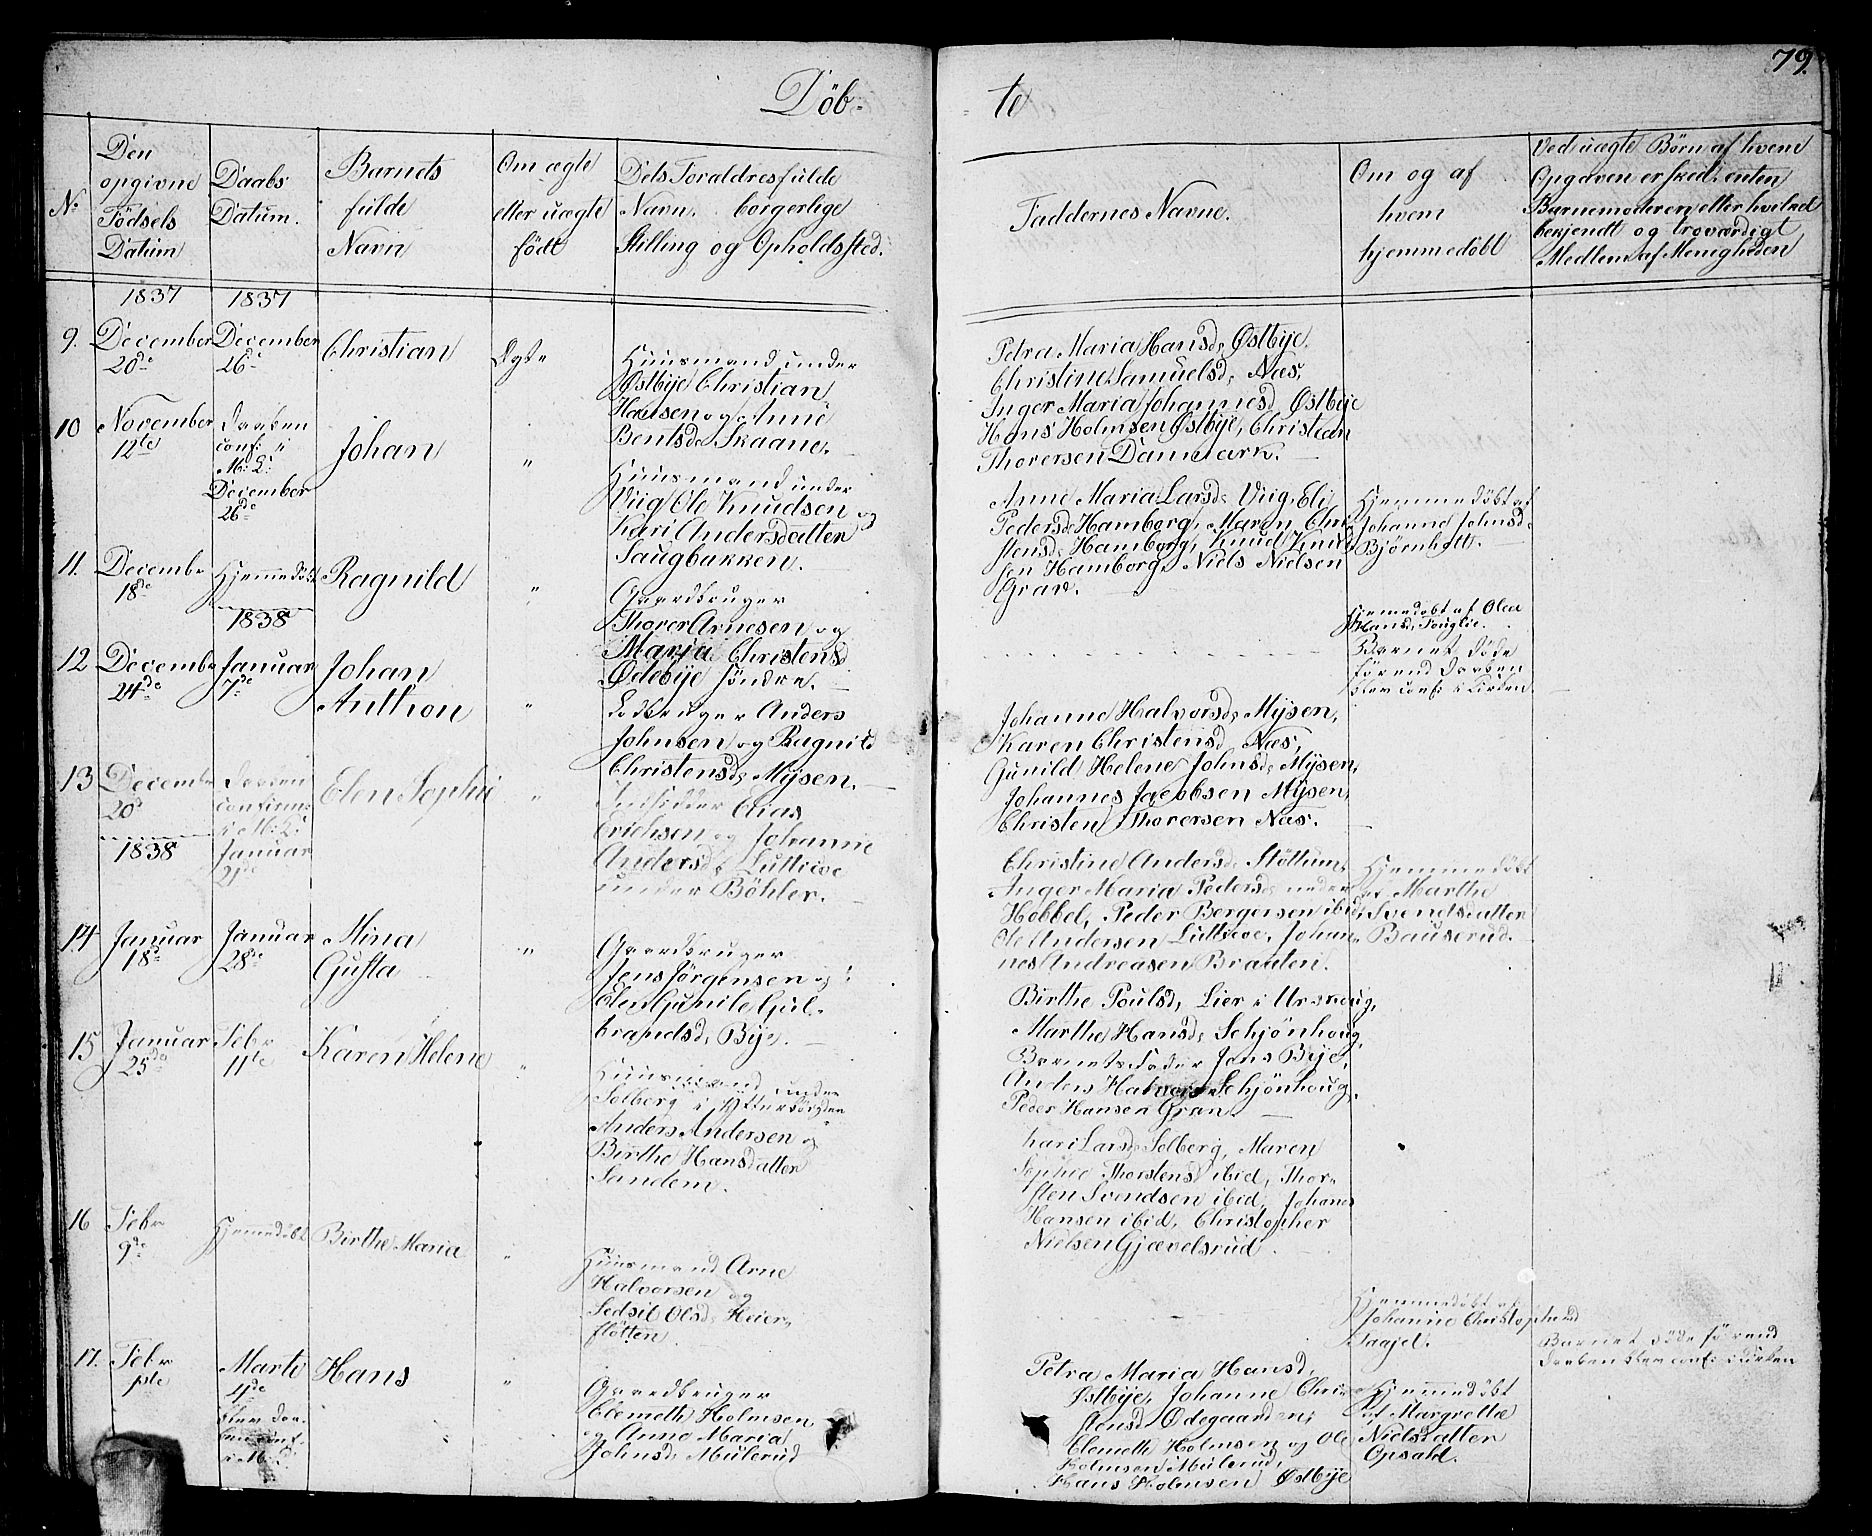 79.
Döb-
te
No
Den
opgivne
Födsels
Datum
Daabs
Datum.
Barnets
fulde
Navn
Om ægte
eller uægte
født
Dets Foraldres fulde
Navn, borgerlige
Stilling og Opholdssted.
Faddernes Navne.
Om og af
hvem
hjemmedöbt
Ved uægte Børn af hvem
Opgaven er sked, enten
Barnemoderen eller hvilket
bekjendt og troværdigt
Medlem af Menigheden
1837
1837
9.
December
20de
December
26de
Christian
Ægte
Huusmand under
Østbye Christian
Hansen og Anne
Bentsd: Skaane.
Petra Maria Hansd: Østbye,
Christine Samuelsd: Næs,
Inger Maria Johannesd Østbye
Hans Holmsen Østbye, Christian
Thorersen Danmark.
10
November
12te
Daaben
conf: i
M: K:
December
26de
Johan
"
Huusmand under
Viig Ole Knudsen og
Kari Andersdatter
Saugbakken.
Anne Maria Larsd: Viig, Eli
Pedersd: Hamborg, Maren Chri-
stensd: Hamborg, Knud Knud-
sen Hamborg, Niels Nielsen
Grav.
Hjemmedöbt af
Johanne Johnsd:
Björnholt.
11.
Decembr
18de
Hjemmedöbt
Ragnild
"
Gaardbruger
Thorer Arnesen og
Maria Christensd
Ødebye söndre.
Hjemmedöbt af Olea
Hansd:
Barnet döde
förend Daaben
blev conf: i Kirken.
1838
12
Decembr
24de
Januar
7de
Johan
Anthon
"
Ledbruger Anders
Johnsen og Ragnild
Christensd: Mysen.
Johanne Halvorsd: Mysen,
Karen Christensd Næs,
Gunild Helene Johnsd: Mysen,
Johannes Jacobsen Mysen,
Christen Thorersen Næs.
13
Decembr
20de
Daaben
confirm:
i M: K:
Januar
21de
Elen Sophie
"
Indsidder Elias
Erichsen og Johanne
Andersd:
under Böhler.
Christine Andersd: Stöttum,
Inger Maria Pedersd: nedre
Hobbel, Peder Bergersen ibid,
Ole Andersen Johan-
nes Andreasen Braaten.
Hjemmedöbt
af Marthe
Svendsdatter
Bauserud.
1838
14
Januar
18de
Januar
28de
Mina
Gusta
"
Gaardbruger
Jens Jörgensen og
Elen Gunile Gul-
brandsd: Bye.
Birthe Poulsd: Lier i Urskoug,
Marthe Hansd: Schjönhoug,
Barnets Fader Jens Bye,
Anders Halvors: Schjönhoug,
Peder Hansen Gran.
15
Januar
25de
Febr
11te
Karen Helene
"
Huusmand under
Solberg i
Anders Andersen og
Birthe Hansdatter
Sandem.
Kari Larsd: Solberg, Maren
Sophie Thorstens: ibid, Thor-
sten Svendsen ibid, Johannes
Hansen ibid, Christopher
Nielsen Gjævelsrud.
16
Febr
9de
Hjemmedöbt
Birthe Maria
"
Huusmand Arne
Halvorsen og
Sedsil Olsd: Heier-
flötten.
Hjemmedöbt af
Johanne Christophersd
Daajel.
Barnet döde förend
Daaben blev conf: i Kirken
17.
Febr
1ste
Marts
4de
blev Daa-
ben conf.
i M: K:
Hans
"
Gaardbruger
Clemeth Holmsen
og Anne Maria
Johnsd: Mulerud
Petra Maria Hansd:
Østbye, Johanne Chri-
stensd: Ødegaarden,
Clemeth Holmsen og Ole
Holmsen Mulerud,
Hans Holmsen Østbye
Hjemmedöbt
af Margrethe
Nielsdatter
Opsahl.